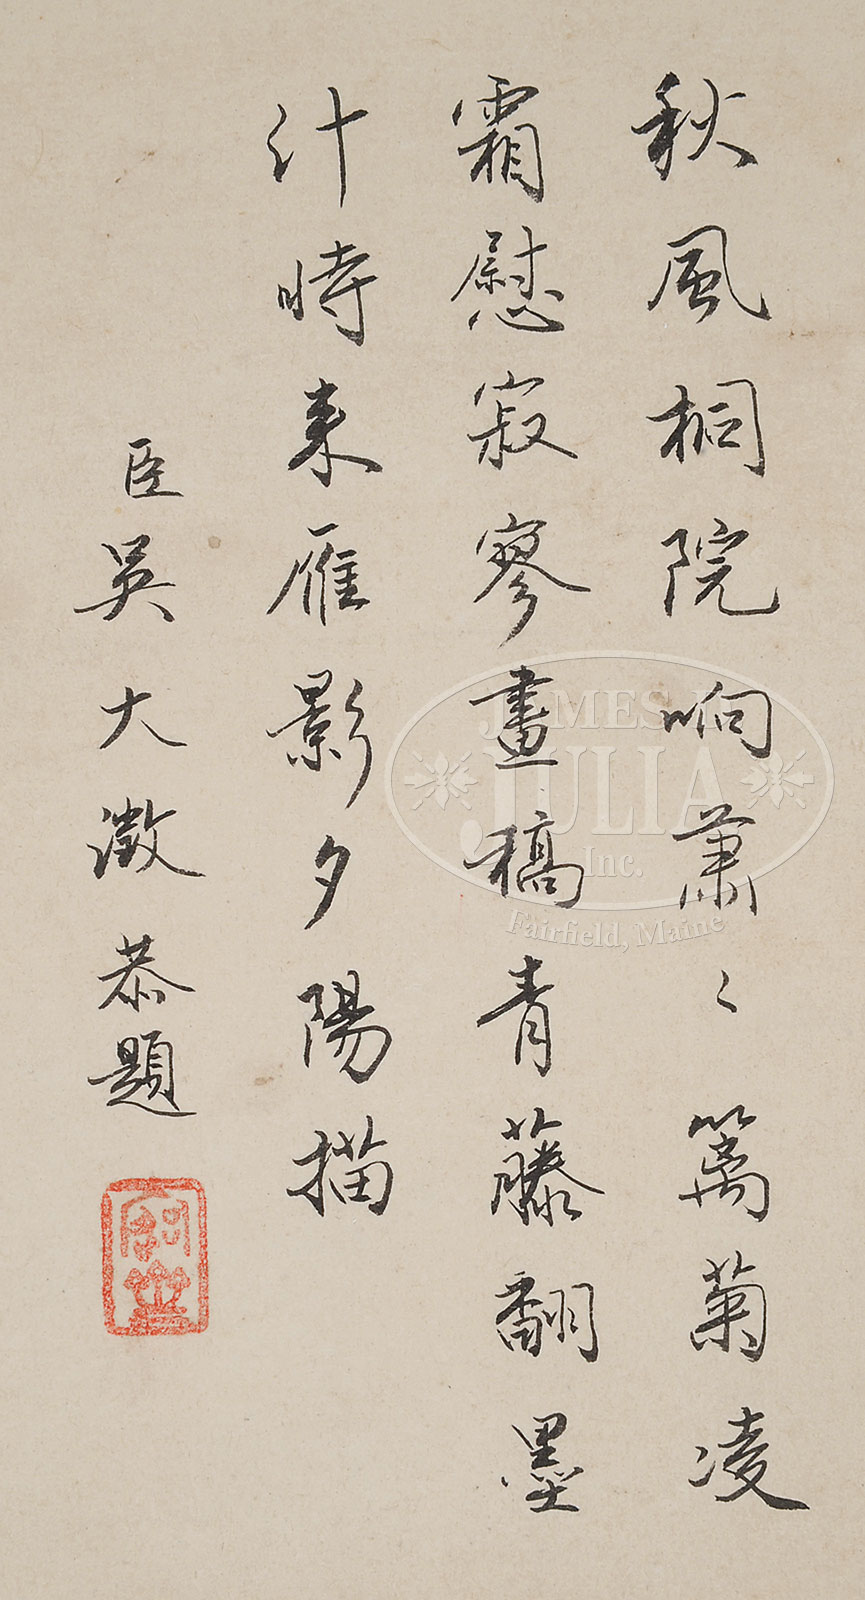 秋風桐院响蕭〻篱菊凌
霜慰寂寥畫稿青藤翻墨
汁時來雁影夕陽描
臣吳大澂恭題
JAMES D.
JULIA
Inc.
Fairfield, Maine